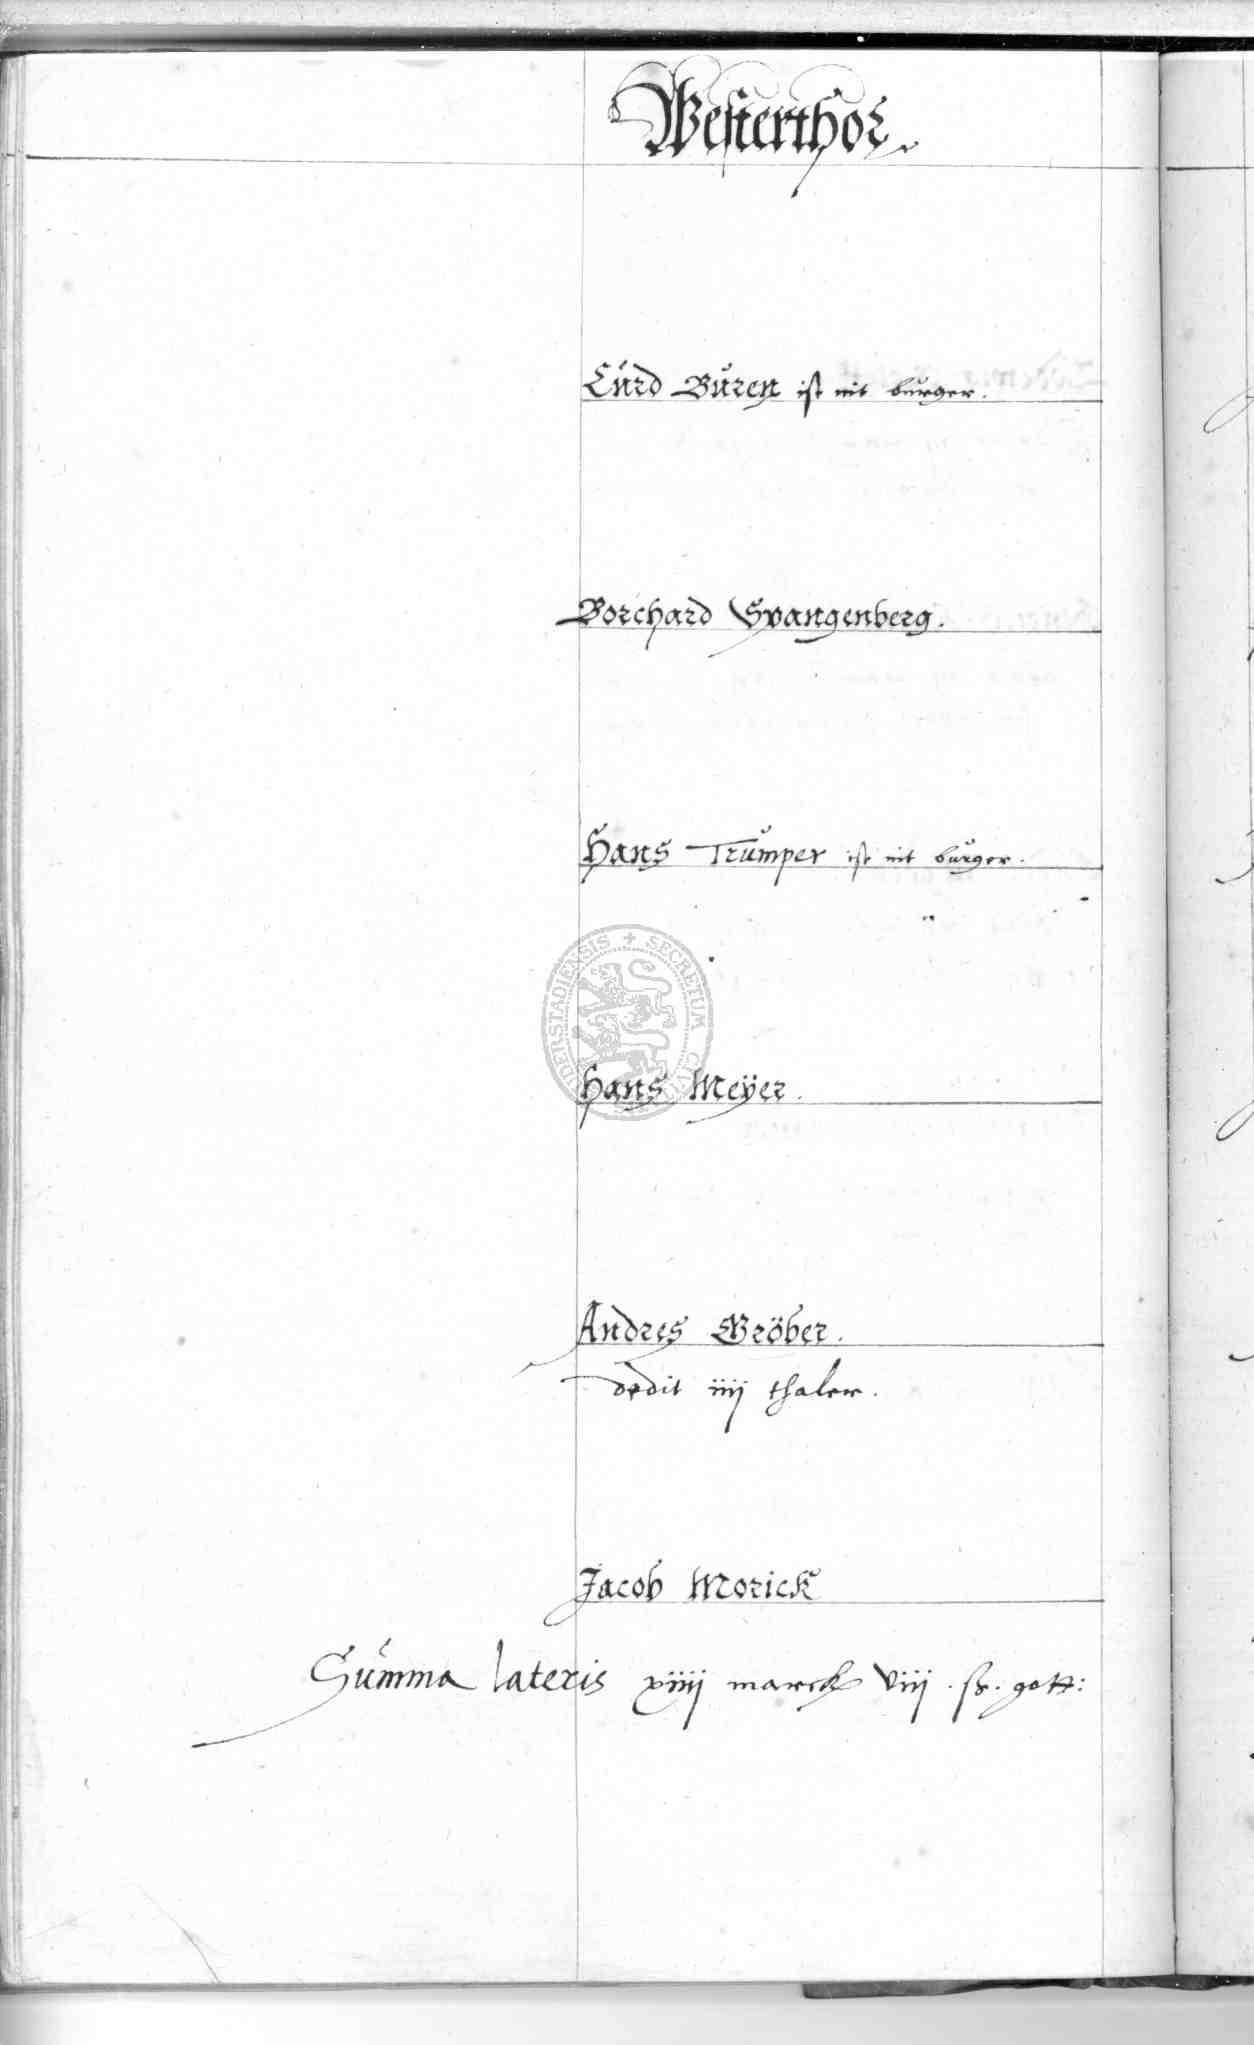 Westerthor.
Curd Buren ist nit burger.
Borchard Spangenberg.
Hans Trumper ist nit burger.
Hans Meÿer.
Andres Gröber.
dedit iiij thaler.
Jacob Morick
Summa lateris xiiij marck viij ß. gott: